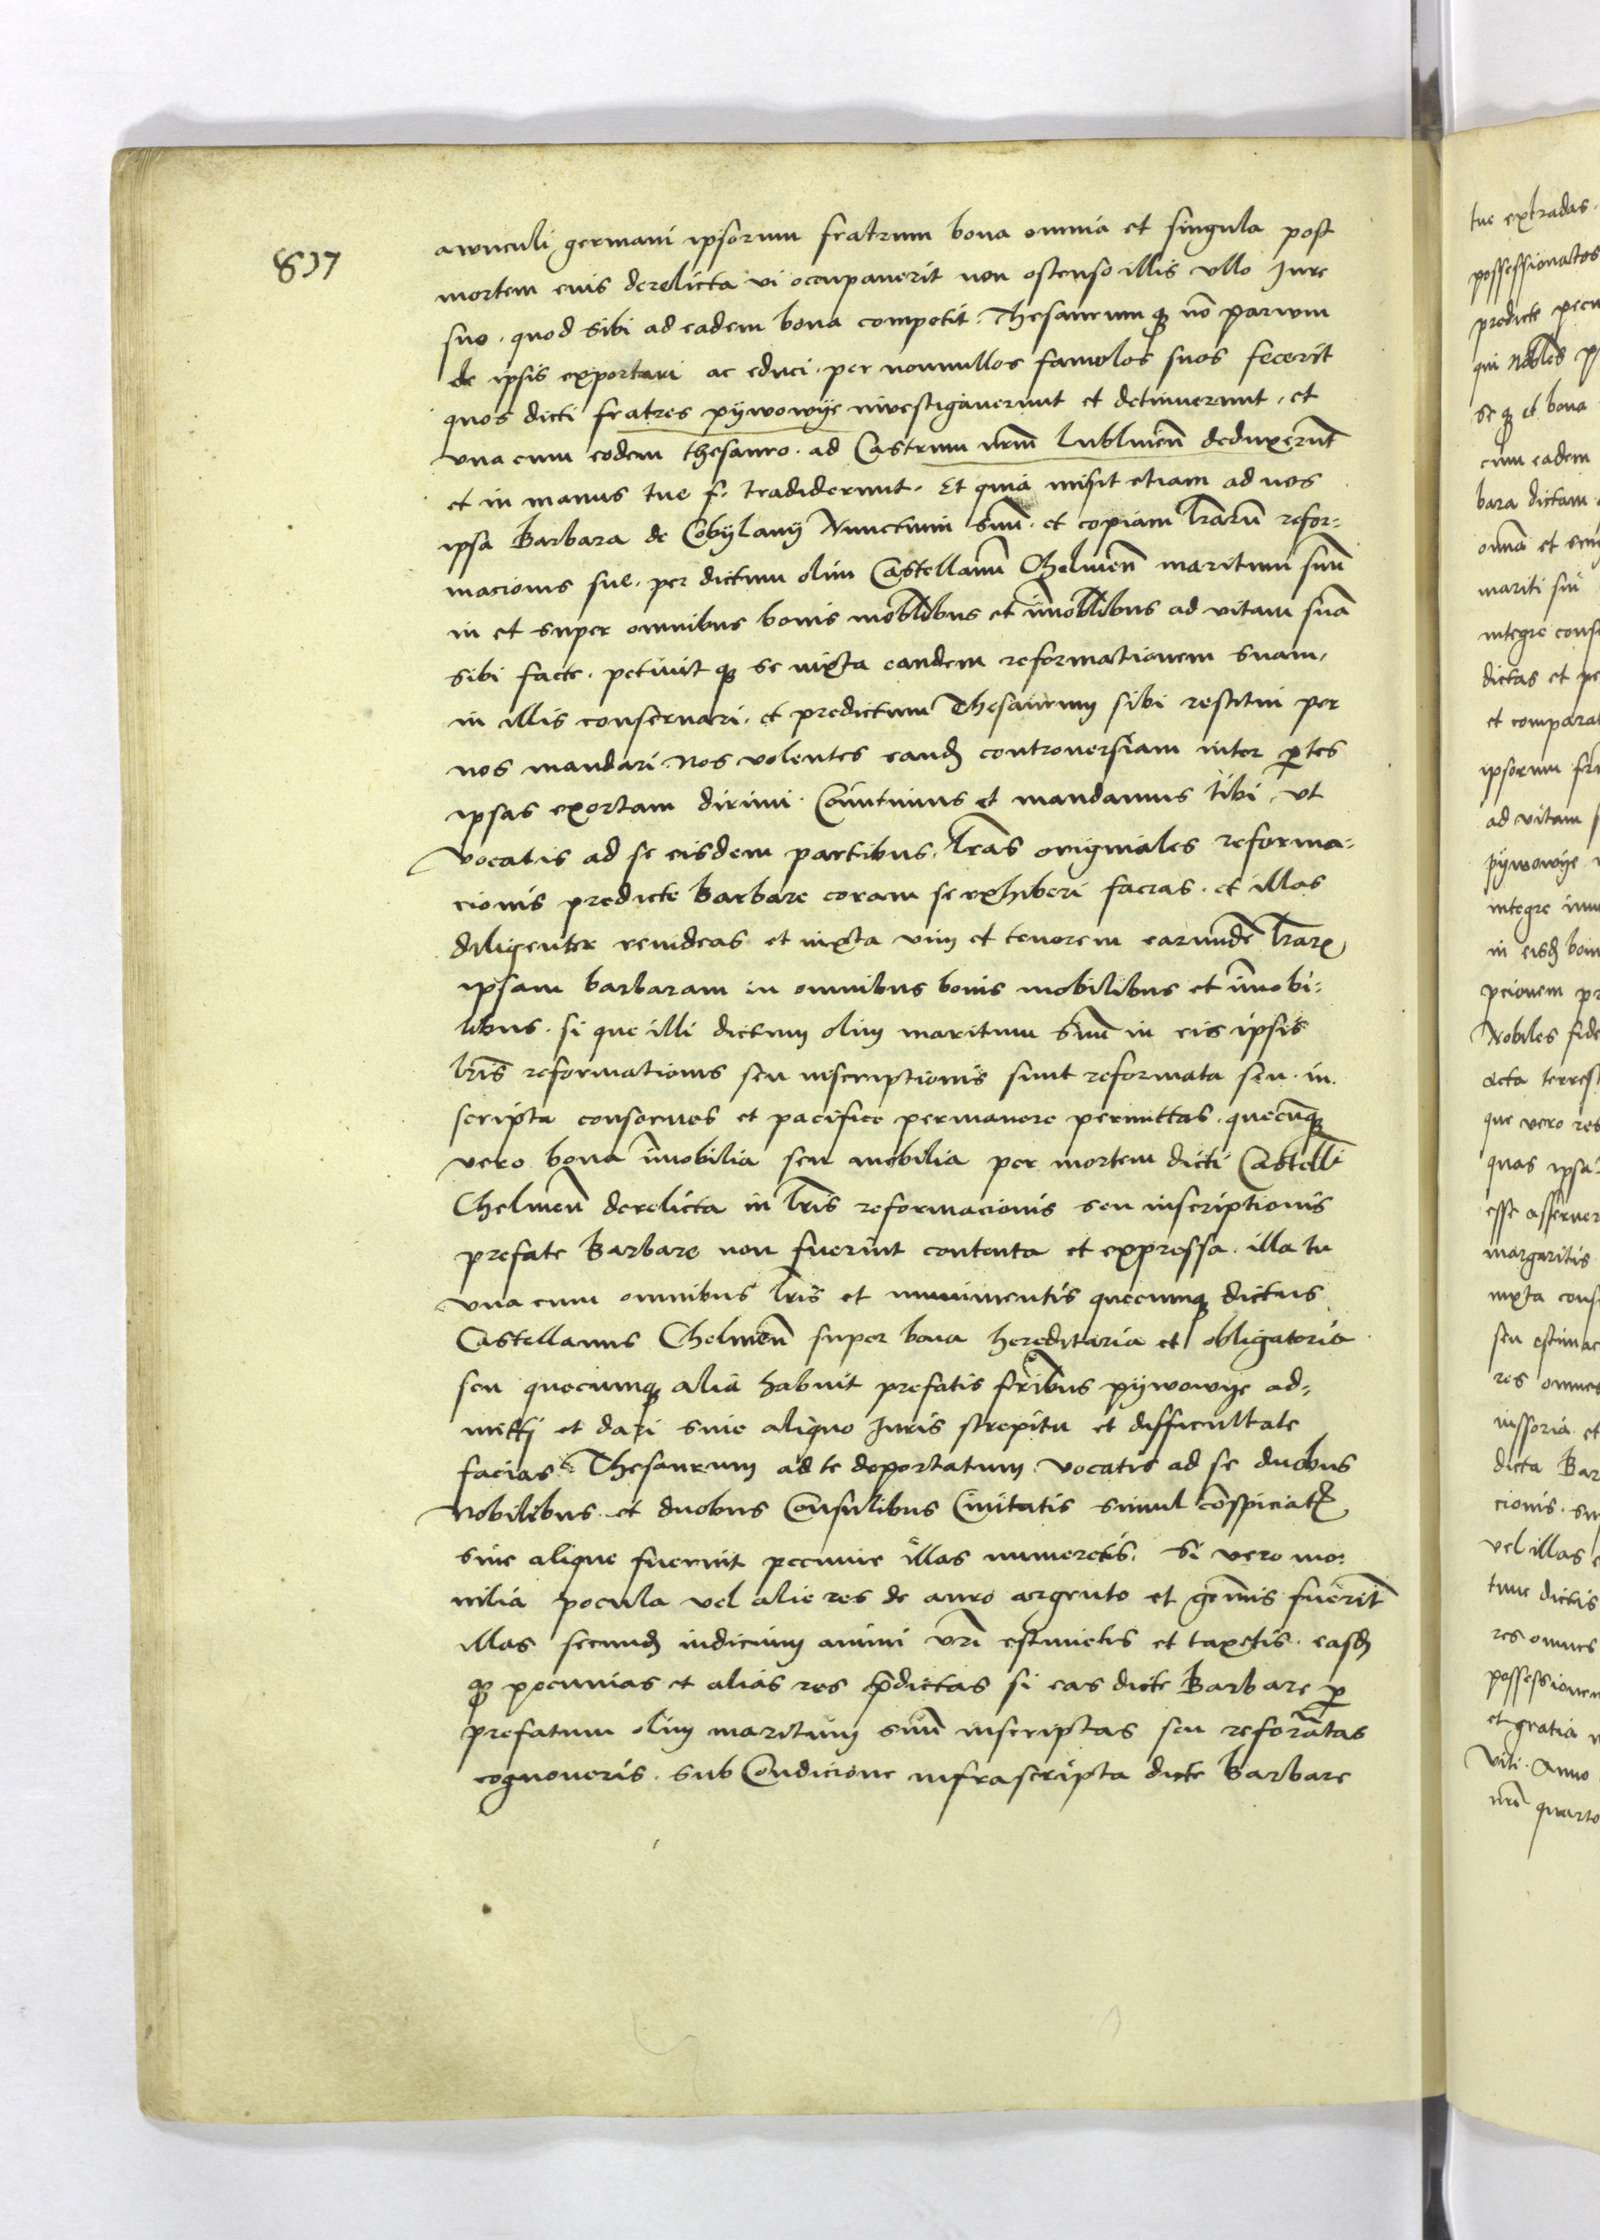 837
awunculi germani ipsorum fratrum bona omnia et singula post
mortem euis derelicta vi occupauerit non ostenso illis vllo Jure
suo. quod sibi ad eadem bona competit. Thesaurum q̨ nō parwm
de ipsis exportari ac educi. per nonnullos famulos suos fecerit
quos dicti fratres pÿwowÿe investigauerunt et detinuerunt. et
vna cum eodem thesauro. ad Castrum nr̄m lublinen̄ deduxerūt
et in manus tue s. tradiderunt. Et quia misit etiam ad nos
ipsa Barbara de Cobÿlanÿ Nunctium suū. et copiam lr̄arū refor:
macionis sue. per dictum olim Castellanū Chelmen̄ maritum suū
in et super omnibus bonis mob̄libus et īmob̄libus ad vitam suā
sibi facte. petiuit q̨ se iuxta eandem reformationem suam,
in illis conseruari. et predictum Thesaurum sibi restitui per
nos mandari. Nos volentes eand̨ controuersiam inter p̄tes
ipsas exortam dirimi. Cōmittimus et mandamus tibi, vt
vocatis ad se eisdem partibus. lr̄as originales reforma:
cionis predicte Barbare coram se exhiberi facias. et illas
diligenter reuideas et iuxta vim et tenorem earundē lr̄arꝝ
ipsam barbaram in omnibus bonis mobilibus et īmobi:
libus. si que illi dictum olim maritum suū in eis ipsis
lr̄is reformationis seu inscriptionis sunt reformata seu in.
scripta conserues et pacifice permanere permittas. quecūq̨
vero bona īmobilia seu mobilia per mortem dicti Castell̄i
Chelmen̄ derelicta in lr̄is reformacionis seu inscriptionis
prefate Barbare non fuerint contenta et expressa. illa tu
vna cum omnibus lr̄is et munimentis quecumq̨ dictus
Castellanus Chelmen̄ super bona hereditaria et obligatoria
seu quecumq̨ alia habuit prefatis fr̄ibus pÿwowÿe ad=
mitti et dari sine aliquo Juris strepitu et difficultate
facias. Thesaurum ad te deportatum. vocatis ad se duobus
Nobilibus et duobus Consulibus Ciuitatis simul cōspiciatꝭ
siue alique fuerint pecunie illas numeretis. Si vero mo:
nilia pocula vel alie res de auro argento et gem̄is fuerīt
illas secund̨ iudicium animi vr̄i estimetis et taxetis. easd̨
q̨ pecunias et alias res p̄dictas si eas dicte Barbare p̱
prefatum olim maritum suū inscriptas seu reform̄atas
cognoueris. sub Condicione infrascripta dicte Barbare
tue extradas.
possessionatos
predicte pecu
qui nob̄les
se q̨ et bona
cum eadem
bara dictam
omnia et
mariti sui
integre
dictas et
et compara
ipsorum
ad vitam
pÿwowÿe
integre
in eisd̨
pcionem
Nobiles fide
acta terrest
que vero res
quas ipsa
esse asseruer
margaritis
iuxta cons
seu estimac
res omnes
iussoria et
dicta Bar
cionis. su
vel illas
tunc dictis
res omnes
possessionem
et gratia
viti. Anno
nr̄i quarto